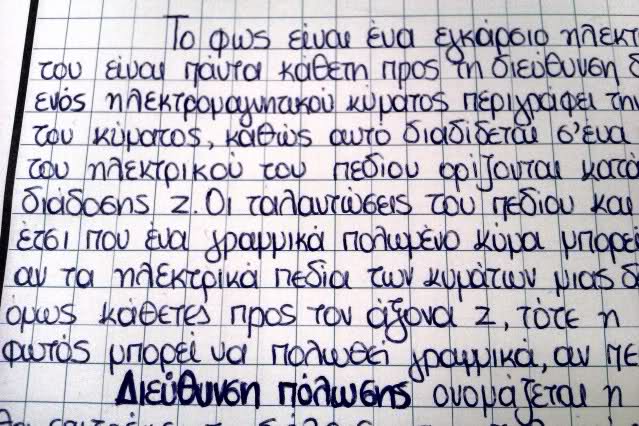 Το φως είναι ένα εγκάρσιο ηλεκτ
του είναι πάντα κάθετη προς τη διεύθυνση δ
ενός ηλεκτρομαγνητικού κύματος περιγράφει τη
του κύματος, καθώς αυτό διαδίδεται σ'ένα
του ηλεκτρικού του πεδίου ορίζονται κατά
διάδοσης z. Οι ταλαντώσεις του πεδίου και
έτσι που ένα γραμμικά πολωμένο κύμα μπορεί
αν τα ηλεκτρικά πεδία των κυμάτων μιας δ
όμως κάθετες προς τον άξονα z, τότε η
φωτός μπορεί να πολωθεί γραμμικά, αν πε
Διεύθυνση πόλωσης ονομάζεται η